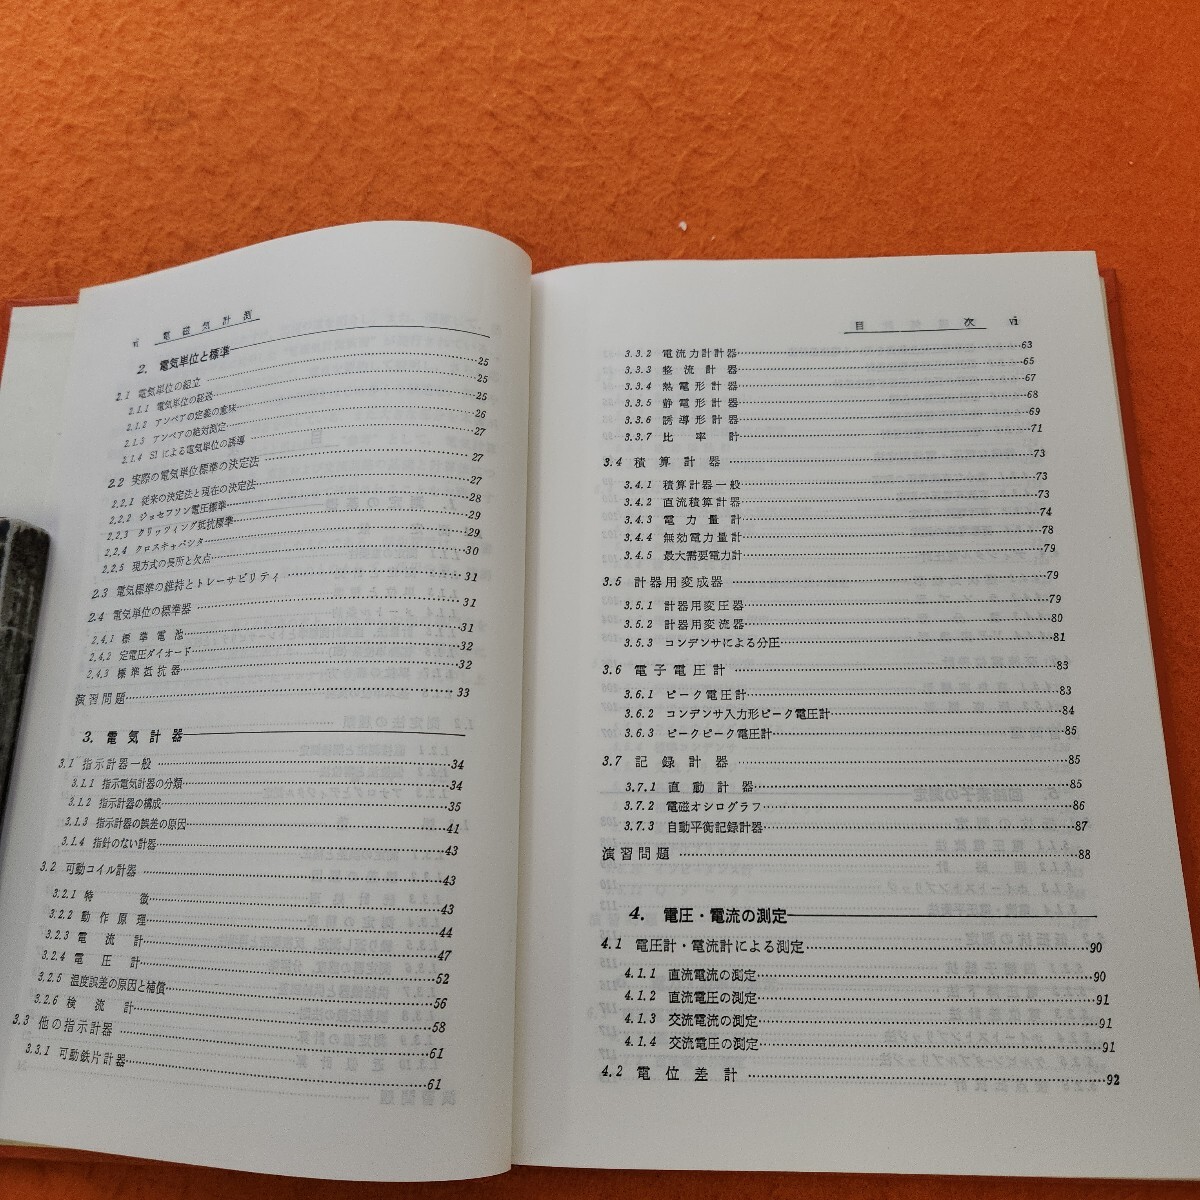 vi 電磁気計測
2. 電気単位と標準
2.1 電気単位の組立……25
2.1.1 電気単位の経送……25
2.1.2 アンペアの定義の意味……25
2.1.3 アンペアの絶対測定……26
2.1.4 SIによる電気単位の誘導……27
2.2 実際の電気単位標準の決定法……27
2.2.1 従来の決定法と現在の決定法……27
2.2.2 ジョセフソン電圧標準……28
2.2.3 クリッツィング抵抗標準……29
2.2.4 クロスキャパシタ……29
2.2.5 現方式の長所と欠点……30
2.3 電気標準の維持とトレーサビリティ……31
2.4 電気単位の標準器……31
2.4.1 標準電池……31
2.4.2 定電圧ダイオード……32
2.4.3 標準抵抗器……32
演習問題……33
3. 電気計器
3.1 指示計器一般……34
3.1.1 指示電気計器の分類……34
3.1.2 指示計器の構成……35
3.1.3 指示計器の誤差の原因……41
3.1.4 指針のない計器……43
3.2 可動コイル計器……43
3.2.1 特徴……43
3.2.2 動作原理……44
3.2.3 電流計……47
3.2.4 電圧計……52
3.2.5 温度誤差の原因と補償……56
3.2.6 検流計……58
3.3 他の指示計器……61
3.3.1 可動鉄片計器……61
目次 vii
3.3.2 電流力計計器……63
3.3.3 整流計器……65
3.3.4 熱電形計器……67
3.3.5 静電形計器……68
3.3.6 誘導形計器……69
3.3.7 比率計……71
3.4 積算計器……73
3.4.1 積算計器一般……73
3.4.2 直流積算計器……73
3.4.3 電力量計……74
3.4.4 無効電力量計……78
3.4.5 最大需要電力計……79
3.5 計器用変成器……79
3.5.1 計器用変圧器……79
3.5.2 計器用変流器……80
3.5.3 コンデンサによる分圧……81
3.6 電子電圧計……83
3.6.1 ピーク電圧計……83
3.6.2 コンデンサ入力形ピーク電圧計……84
3.6.3 ピークピーク電圧計……85
3.7 記録計器……85
3.7.1 直動計器……85
3.7.2 電磁オシログラフ……86
3.7.3 自動平衡記録計器……87
演習問題……88
4. 電圧・電流の測定
4.1 電圧計・電流計による測定……90
4.1.1 直流電流の測定……90
4.1.2 直流電圧の測定……91
4.1.3 交流電流の測定……91
4.1.4 交流電圧の測定……91
4.2 電位差計……92